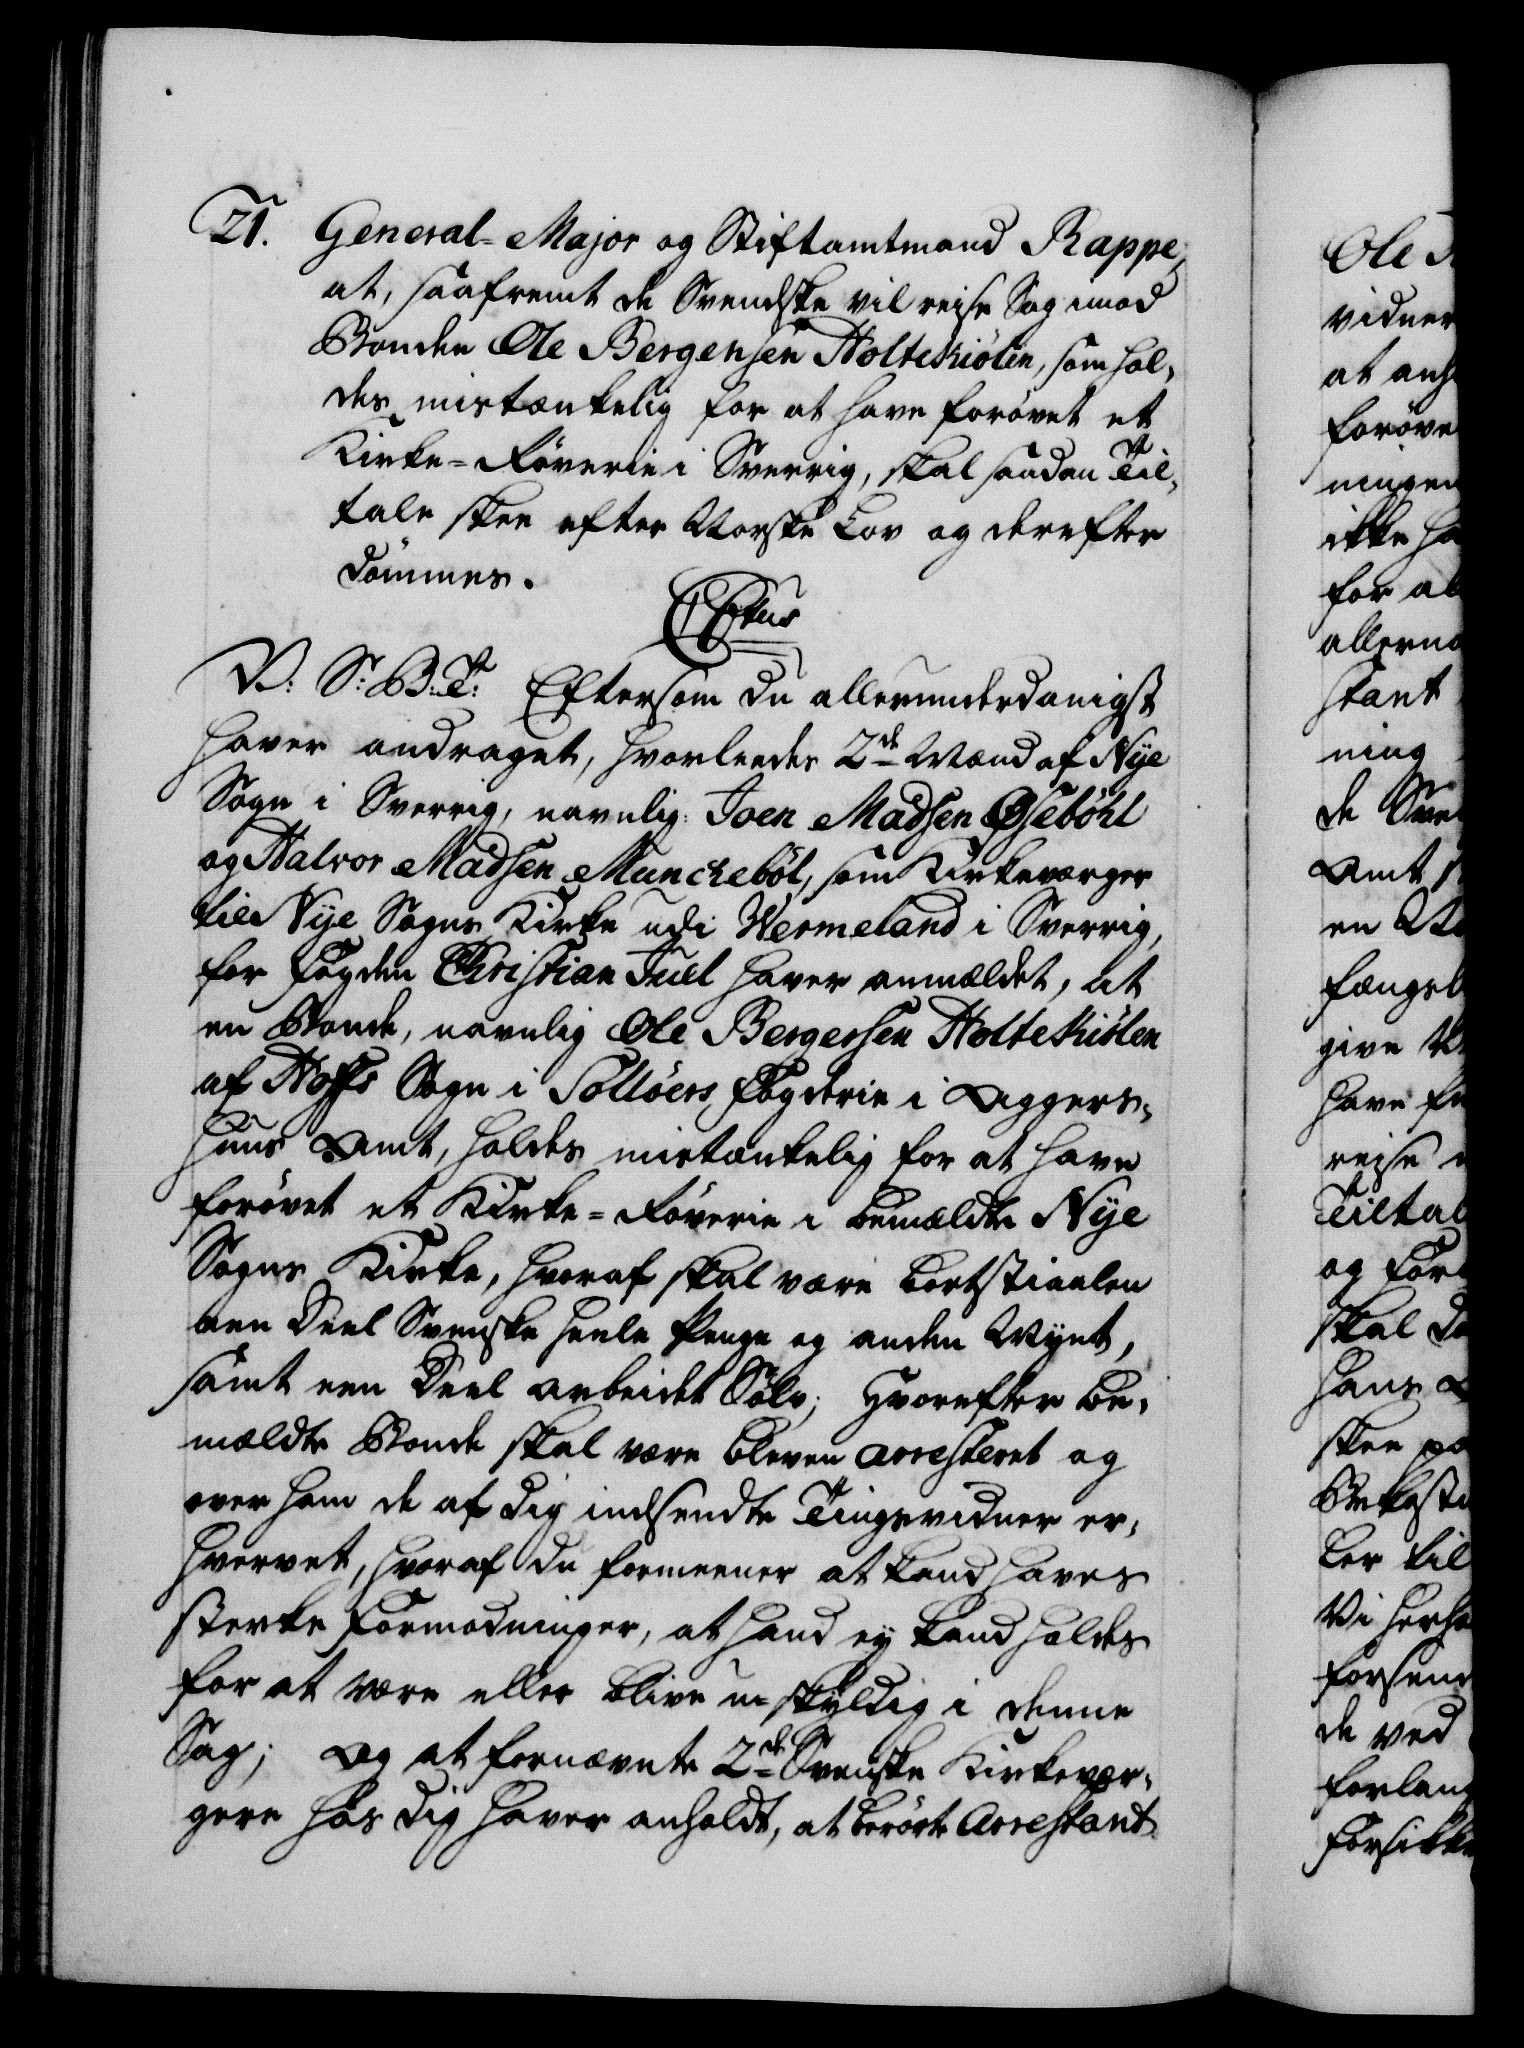 21. General-Major og Stiftamtmand Rappe,
at, saafremt de Svendske vil reise Sag imod
Bonden Ole Bergensen Holtekiølen, som hol-
des mistænkelig for at have forøvet et
Kirke-Røverie i Sverrig, skal saadan Til-
tale skee efter Norske Lov og derefter
dømmes.
C 6tus
V: S: B: T: Eftersom du allerunderdanigst
haver andraget, hvorleedes 2de Mænd af Nÿe
Sogn i Sverrig, navnlig: Joen Madsen Øsebøhl
og Halvor Madsen Munckebøl, som Kirkeværger
til Nÿe Sogns Kirke udi Wermeland i Sverrig,
for Fogden Christian Juel haver anmældet, at
en Bonde, navnlig Ole Bergersen Holtekiølen
af Hoffs Sogn i Solløers Fogderie i Aggers-
huus Amt, holdes mistænkelig for at have
forøvet et Kirke-Røverie i bemældte Nÿe
Sogns Kirke, hvoraf skal være bortstiaalen
een Deel Svenske heele Penge og anden Mÿnt,
samt een Deel arbeidet Sølv; Hvorefter be-
mældte Bonde skal være bleven arresteret og
over ham de af dig indsendte Tingsvidner er-
hvervet, hvoraf du formeener at kand haves
sterke Formodninger, at hand ej kand holdes
for at være eller blive u-skyldig i denne
Sag; Og at fornævnte 2de Svenske Kirkevær-
gere hos dig haver anholdt, at berørte Arrestant
Ole
vidner
at anh
forøve
ningen
ikke ha
for al
allerna
stant
ning
de Sve
Amt
en
fængsl
give
have
reise
Tiltal
og For
skal
hans
skee
Bekosti
ler til
Vi herh
forsend
de ved
forlang
forsikk